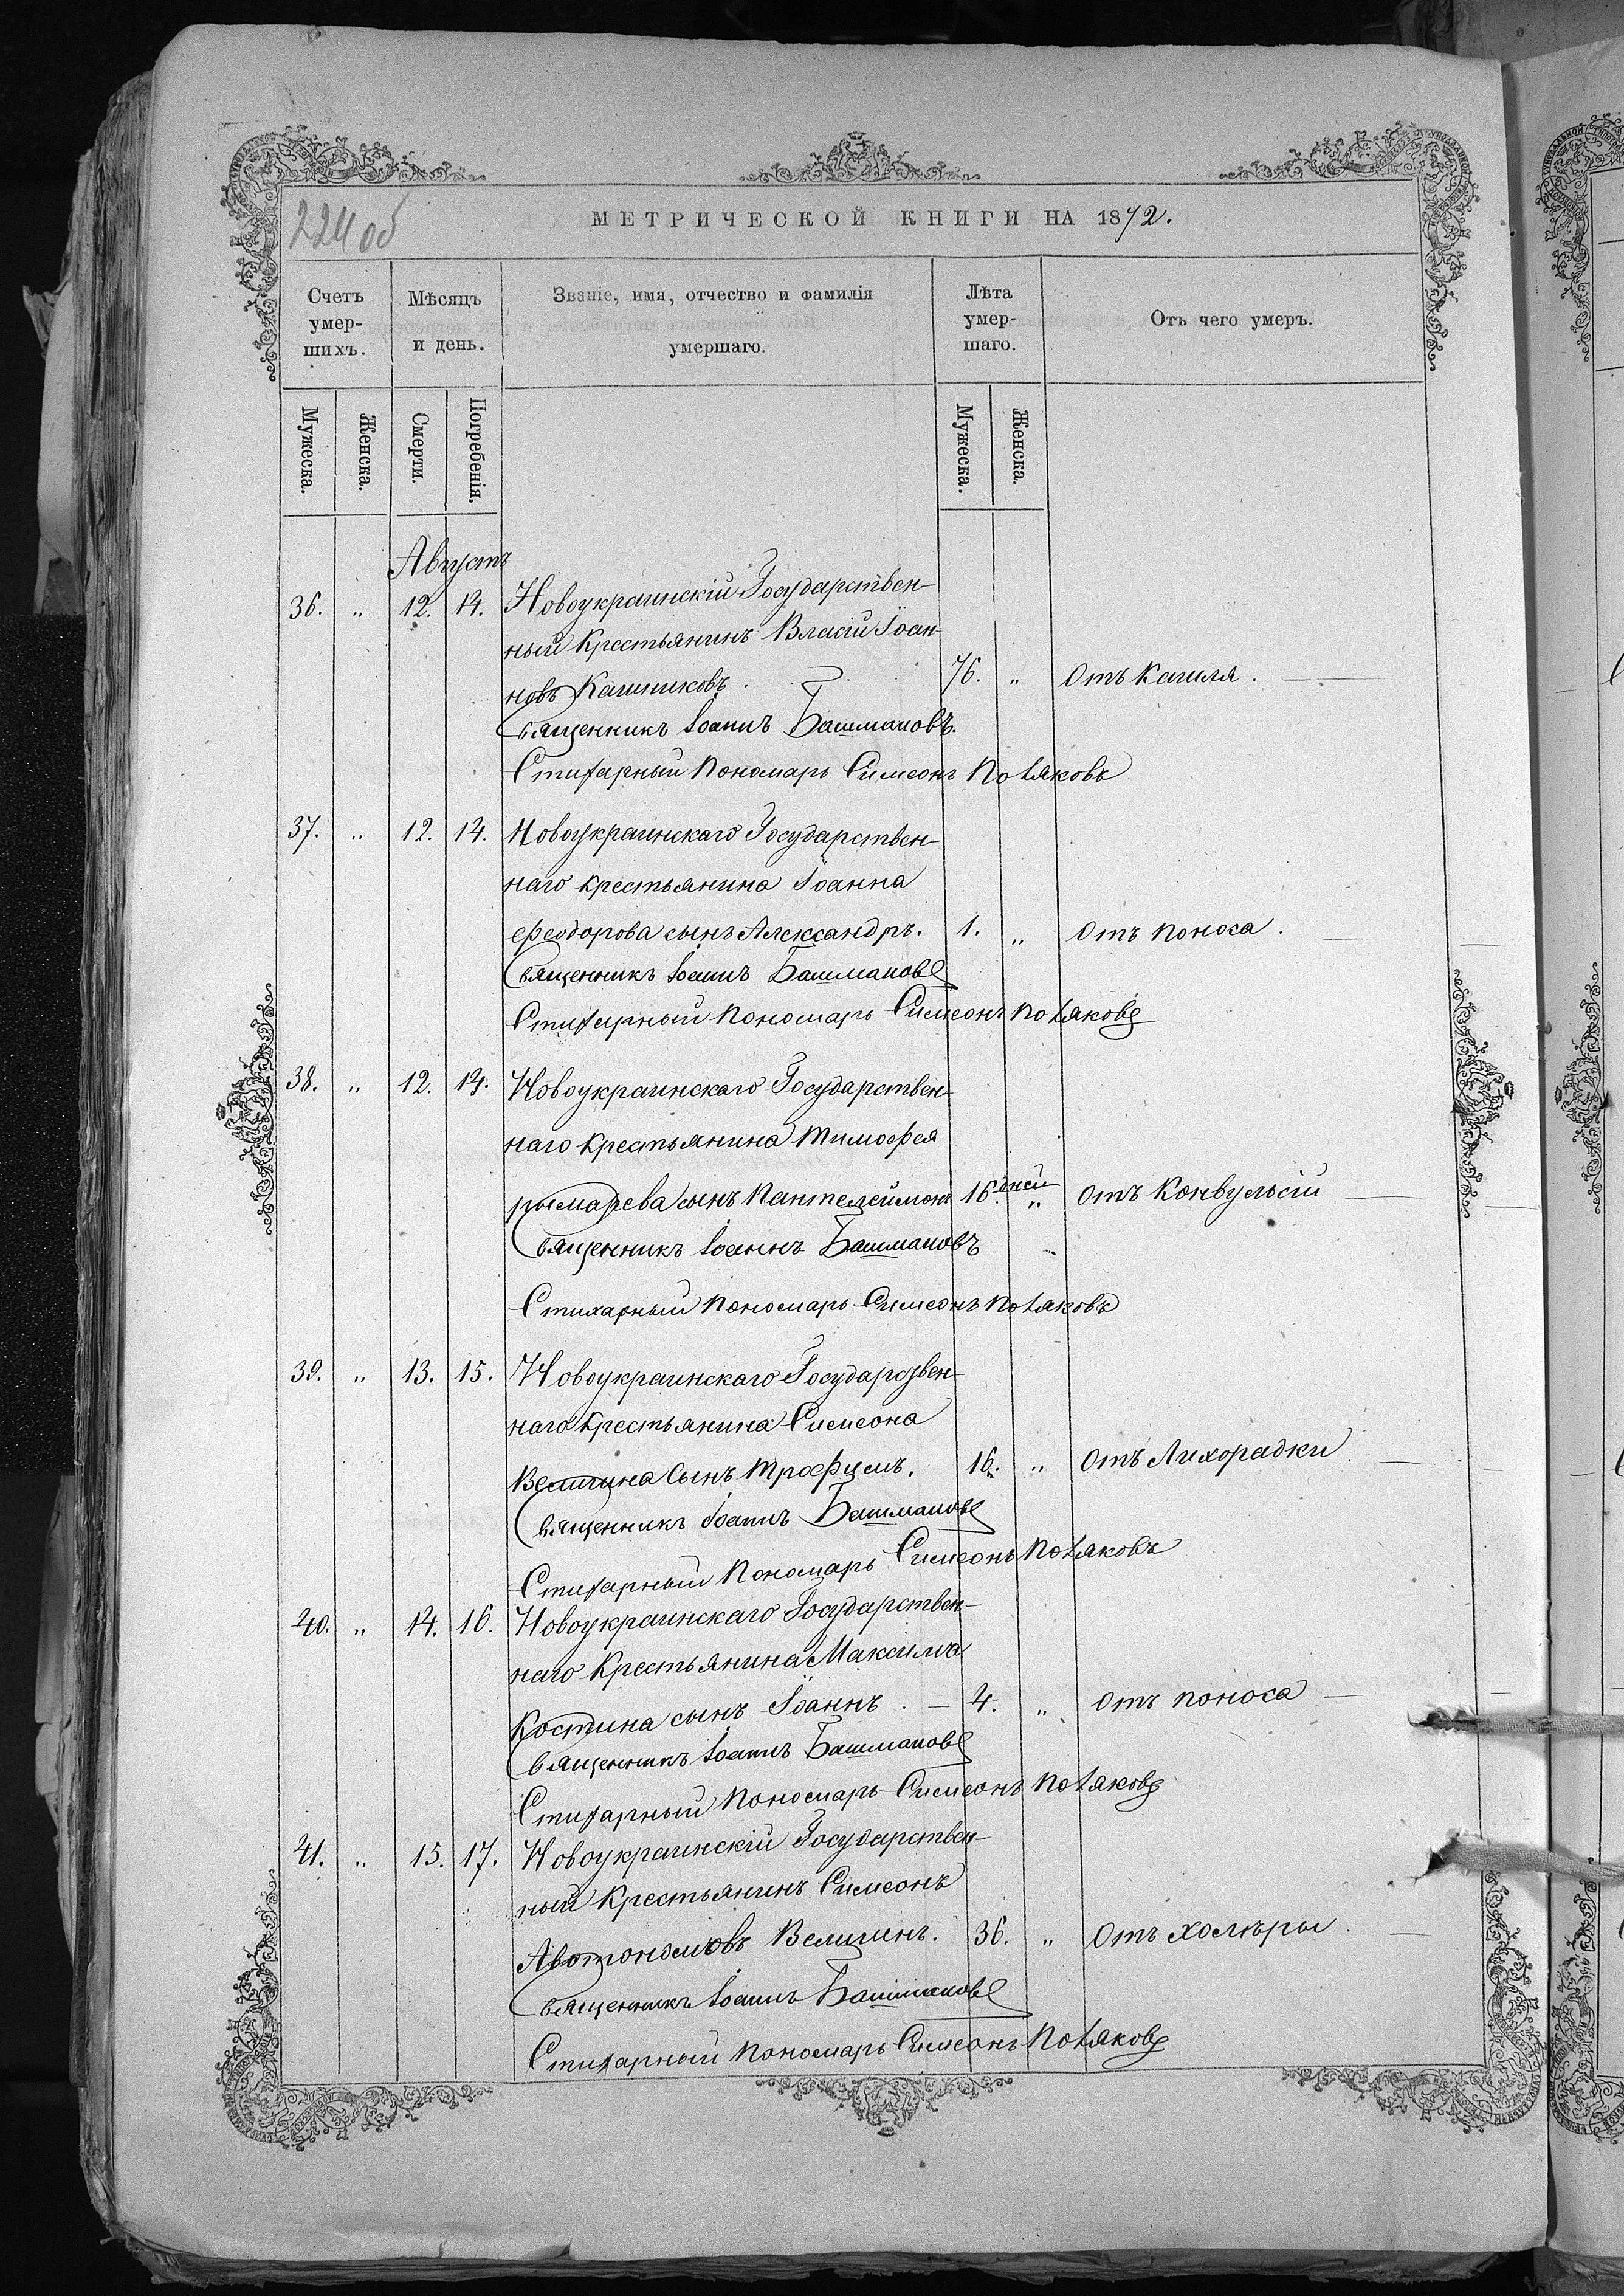 224 об
МЕТРИЧЕСКОЙ КНИГИ НА 1872.
Счетъ умер-шихъ.
Мѣсяцъ и день.
Званіе, имя, отчество и фамилія умершаго.
Лѣта умер-шаго.
Отъ чего умеръ.
Мужеска.
Женска.
Смерти.
Погребенія.
Мужеска.
Женска.
Августъ
36. " 12. 14. Новоукраинскій Государствен-
ный Крестьянинъ Власій Іоан-
новъ Кашниковъ. 76. " Отъ Кашля.
Священникъ Іоаннъ Башмаковъ.
Стихарный Пономарь Симеонъ Поляковъ
37. " 12. 14. Новоукраинскаго Государствен-
наго крестьянина Іоанна
Феодорова сынъ Александръ. 1. " Отъ поноса.
Священникъ Іоаннъ Башмаковъ
Стихарный Пономарь Симеонъ Поляковъ
38. " 12. 14. Новоукраинскаго Государствен-
наго крестьянина Тимофея
рымарева сынъ Пантелеймонъ 16. дней " Отъ Конвульсій
Священникъ Іоаннъ Башмаковъ
Стихарный Пономарь Симеонъ Поляковъ
39. " 13. 15. Новоукраинскаго Государствен-
наго Крестьянина Симеона
Величина Сынъ Трофимъ. 16. " Отъ Лихорадки.
Священникъ Іоаннъ Башмаковъ
Стихарный Пономарь Симеонъ Поляковъ
40. " 14. 16. Новоукраинскаго Государствен-
наго Крестьянина Максима
Костина сынъ Іоаннъ. 4. " Отъ поноса
Священникъ Іоаннъ Башмаковъ
Стихарный Пономарь Симеонъ Поляковъ
41. " 15. 17. Новоукраинскій Государствен-
ный Крестьянинъ Симеонъ
Автономовъ Величинъ. 36. " Отъ холѣры.
Священникъ Іоаннъ Башмаковъ
Стихарный Пономарь Симеонъ Поляковъ